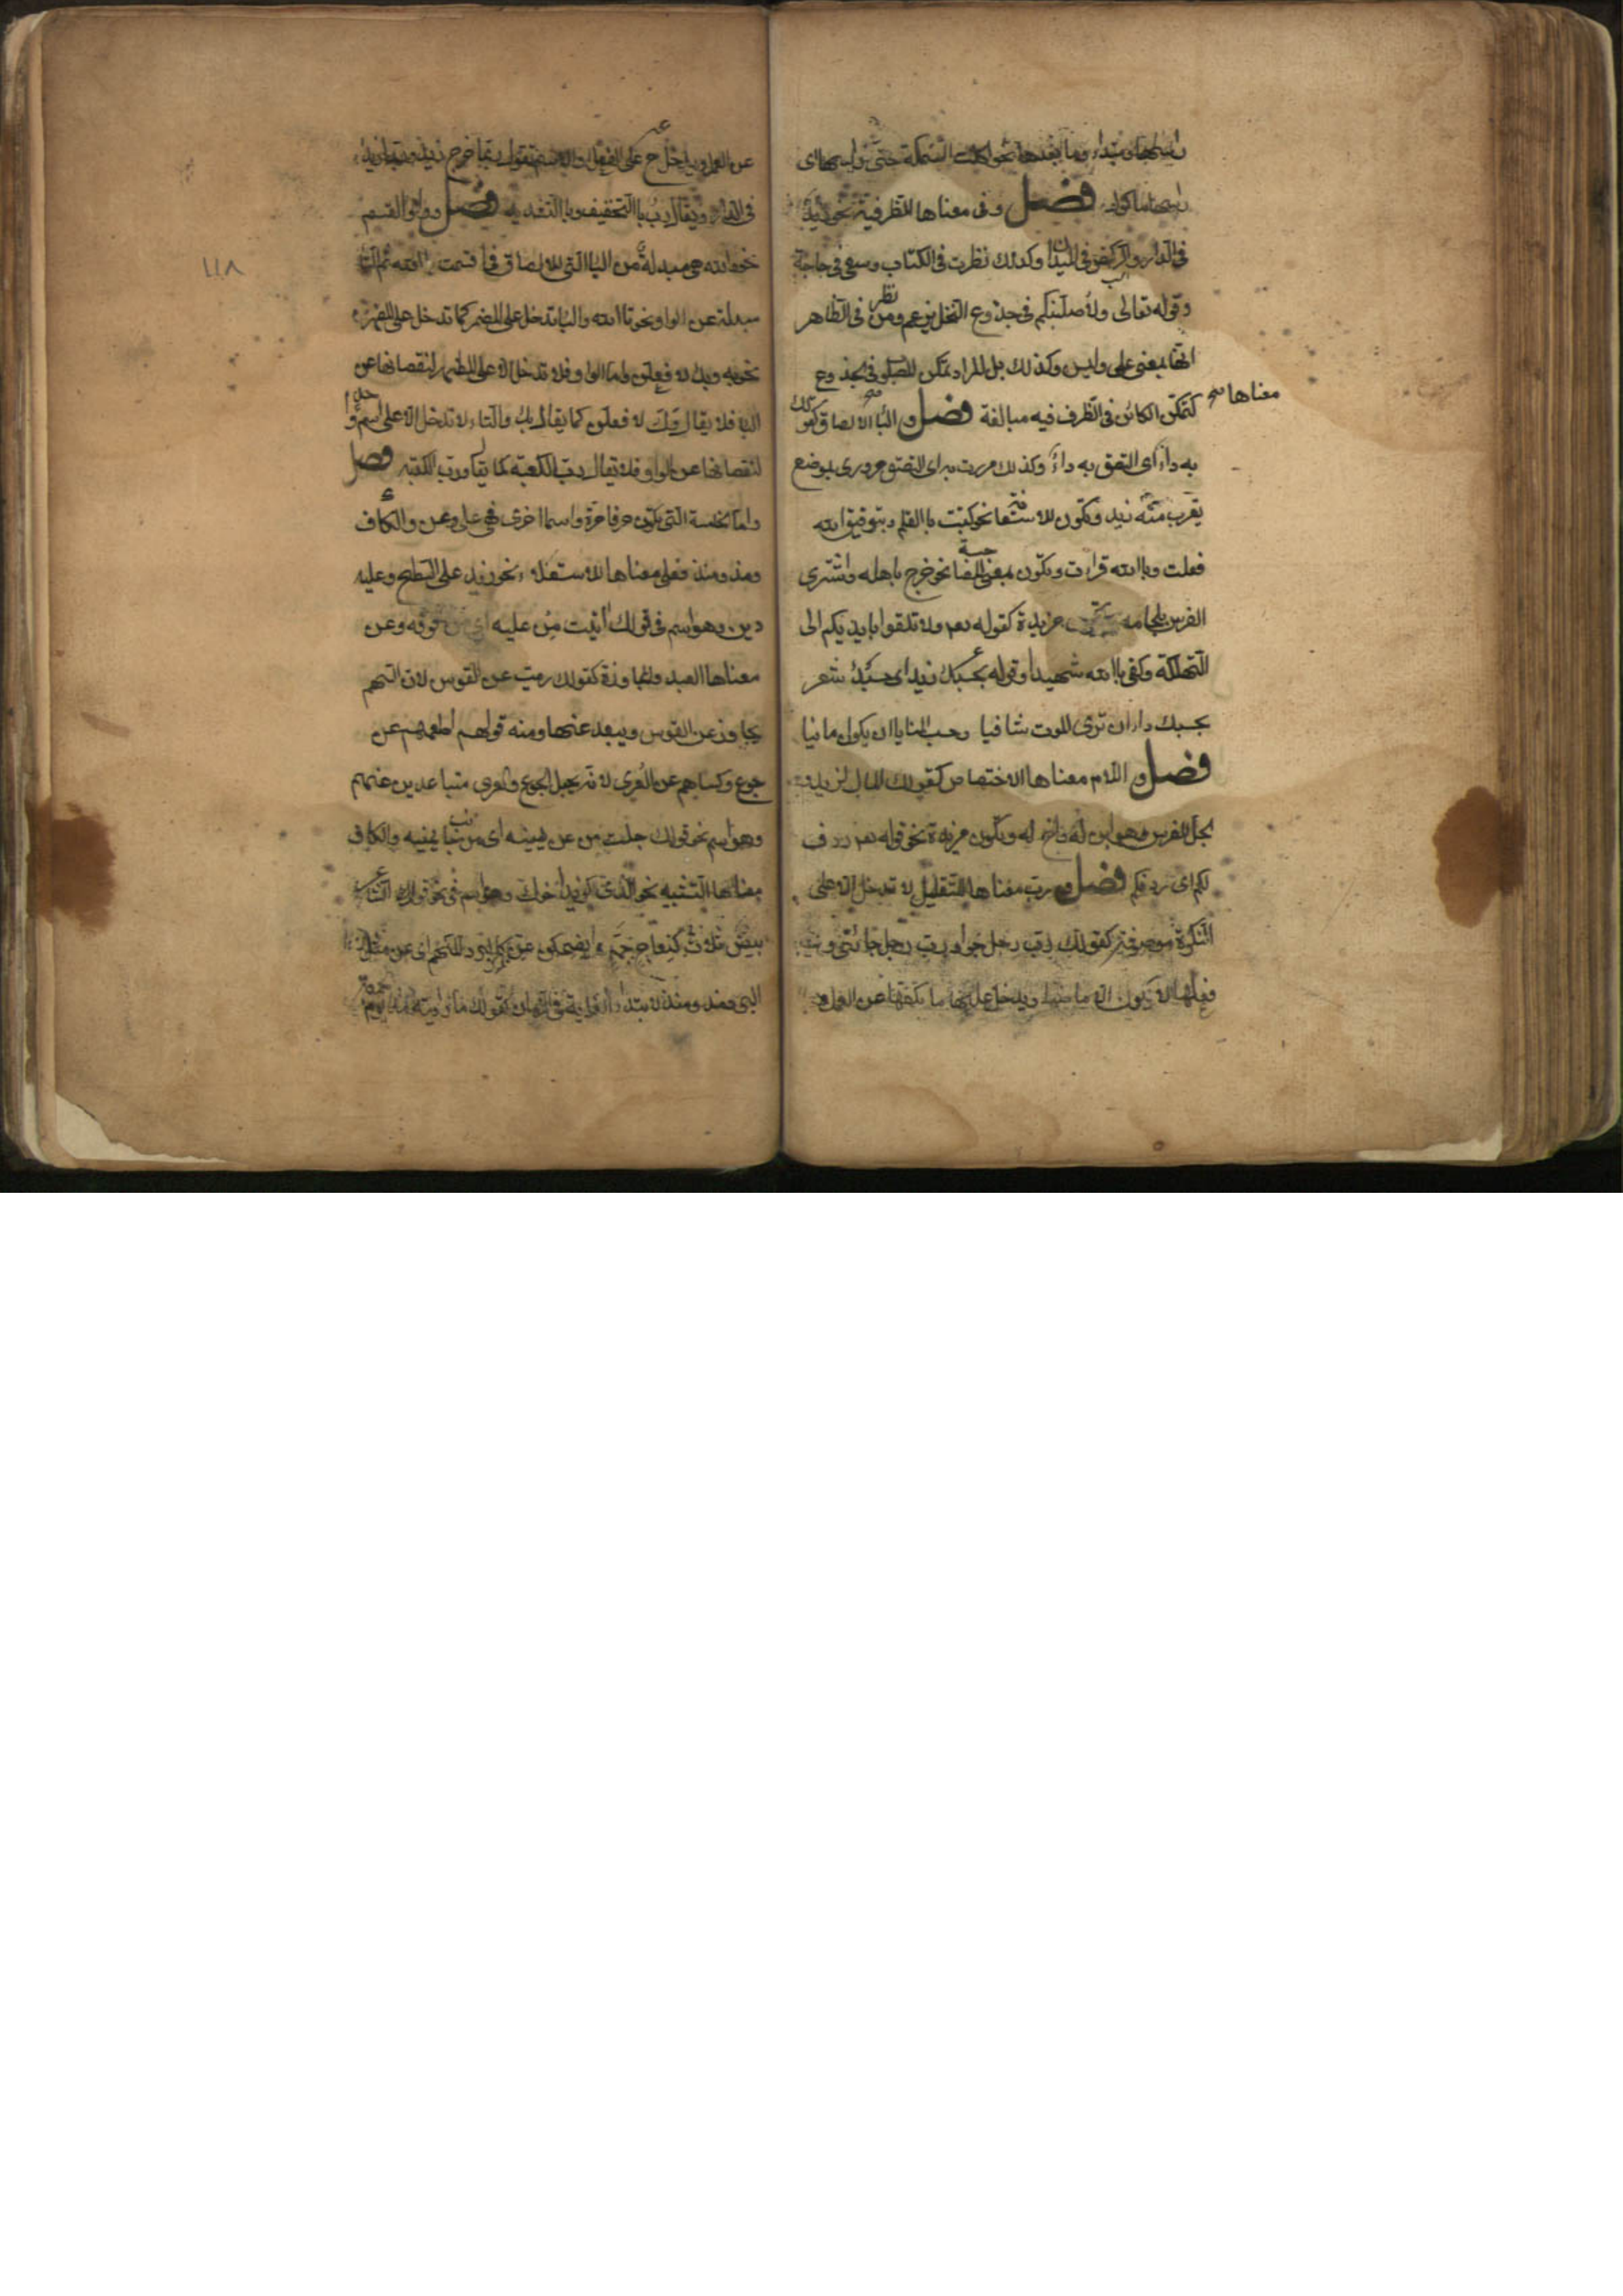 رأسها مبتداء وما بعدها نحو اكلت السمكة حتى راسها اى
راسها ماكول فصل وفى معناها للظرفية نحو زيد
فى الدار والركض فى الميدان وكذلك نظرت فى الكتاب وسعى فى حاجة
وقوله تعالى ولأصلبنكم فى جذوع النخل زعم ومن نظر فى الظاهر
انها بمعنى على وليس وكذلك بل المراد تمكن المصلوب فى الجذوع
كتمكن الكائن فى الظرف فيه مبالغة فصل والباء معناها الالصاق كقولك
به داء اى التصق به داء وكذلك مررت به اى التصق مرورى بموضع
يقرب منه زيد ويكون للاستعانة نحو كتبت باالقلم وبتوفيق الله
فعلت وباالله قرات وتكون بمعنى المصاحبة نحو خرج باهله واشترى
الفرس بلجامه مزيدة كقوله تعم ولا تلقوا بايديكم الى
التهلكة وكفى باالله شهيدا وقوله بحسبك زيد اى حسبك شعر
بحسبك داء ان ترى الموت شافيا وحسب المنايا ان يكون امانيا
فصل واللام معناها الاختصاص كقولك المال لزيد
الجل للفرس وهو ابن له واخ له وتكون مزيدة نحو قوله تعم ردف
لكم اى ردفكم فصل ورب معناها التقليل لا تدخل الا على
النكرة موصوفة كقولك رب رجل جواد رب رجل جائنى
فعلها لا تكون الا ماضيا ويدخل عليها ما تكفها عن العمل
عن العمل ويدخل ح على الفعل والاسم تقول ربما خرج زيد وربما زيد
فى الدار ويقال رب باالتخفيف وباالتشديد فصل وواو القسم
نحو الله هى مبدلة من الباء التى للالصاق فى اقسمت باالله ثم التاء
مبدلة عن الواو نحو تاالله والباء تدخل على المضمر كما تدخل على المظهر
نحو به وبك لا فعلن واما الواو فلا تدخل الا على المظهر لنقصانها عن
الباء فلا يقال وك لا فعلن كما يقال بك والتاء لا تدخل الا على اسم واحد
لنقصانها عن الواو فلا تقال ترب الكعبة كما يقال ورب الكعبة فصل
واما الخمسة التى تكون حرفا مرة واسما اخرى فهى على وعن والكاف
ومذ ومنذ فعلى معناها للاستعلاء نحو زيد على السطح وعليه
دين وهو اسم فى قولك اتيت من عليه اى من فوقه وعن
معناها البعد والمجاوزة كقولك رميت عن القوس لان السهم
يجاوز عن القوس ويبعد عنها ومنه قولهم اطعمهم عن
جوع وكساهم عن العرى لانه يجعل الجوع والعرى متباعدين عنهم
وهو اسم نحو قولك جلست من عن يمينه اى من جانب يمينه والكاف
معناها التشبيه نحو الذى كزيد اخوك وهو اسم فى نحو قوله الشاعر
بيض ثلاث كنعاج جم يضحكن عن كالبرد المنهم اى عن مثل
البرد ومذ ومنذ لابتداء الغاية فى الزمان كقولك ما رايته مذ يوم الجمعة
١١٨